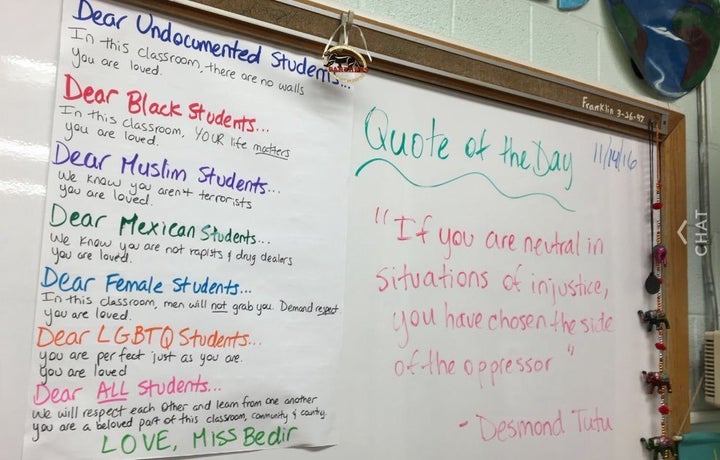 Dear Undocumented Students...
In this classroom, there are no walls
You are loved.
Dear Black Students...
In this classroom, YOUR life matters
you are loved.
Dear Muslim Students...
We know you aren't terrorists
you are loved.
Dear Mexican Students...
We know you are not rapists & drug dealers
you are loved.
Dear Female Students...
In this classroom, men will not grab you. Demand respect
you are loved.
Dear LGBTQ Students...
you are perfect just as you are.
you are loved
Dear ALL Students...
We will respect each other and learn from one another
you are a beloved part of this classroom, community & country.
LOVE, Miss Bedir
Franklin 3-26-97
Quote of the Day
11/14/16
"If you are neutral in
situations of injustice,
you have chosen the side
of the oppressor"
- Desmond Tutu
CHAT